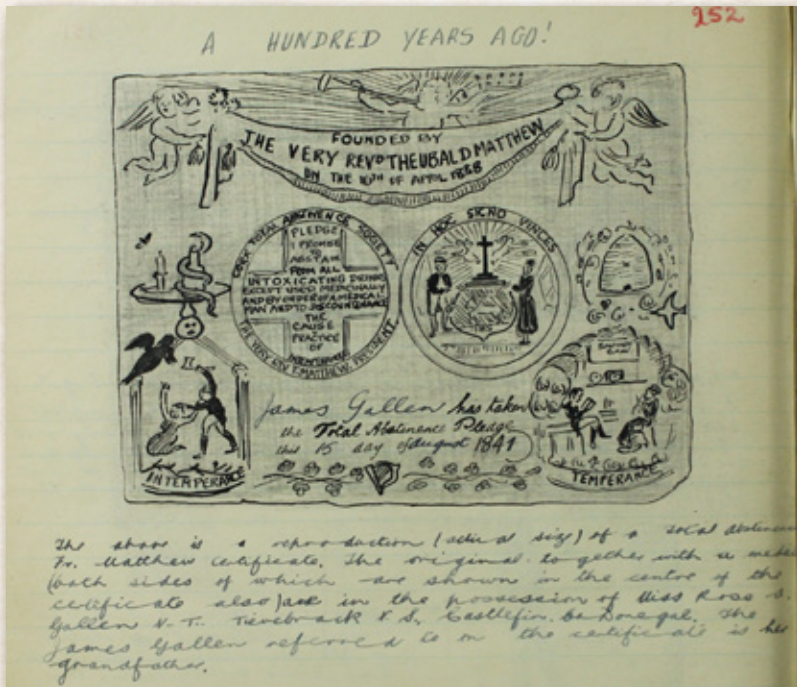 252
A HUNDRED YEARS AGO!
FOUNDED BY
THE VERY REVD THEUBALD MATTHEW
ON THE 10TH OF APRIL 1838
CORK TOTAL ABSTINENCE SOCIETY
PLEDGE
I PROMISE
TO
ABSTAIN
FROM ALL
INTOXICATING DRINKS
EXCEPT USED MEDICINALLY
AND BY ORDER OF A MEDICAL
MAN AND TO DISCOUNTENANCE
THE
CAUSE
PRACTICE
OF
INTEMPERANCE
THE VERY REV T. MATTHEW, PRESIDENT.
IN HOC SIGNO VINCES
James Gallen has taken
the Total Abstenence Pledge
this 15 day of August 1841
INTEMPERANCE
TEMPERANCE
The above is a reproduction (actual size) of a total abstinence
Fr. Matthew certificate. The original together with a medal
(both sides of which are shown in the centre of the
certificate also) are in the possession of Miss Rose S.
Gallen N.T. F.S. Castlefin, Co Donegal. The
James Gallen referred to on the certificate is her
grandfather.